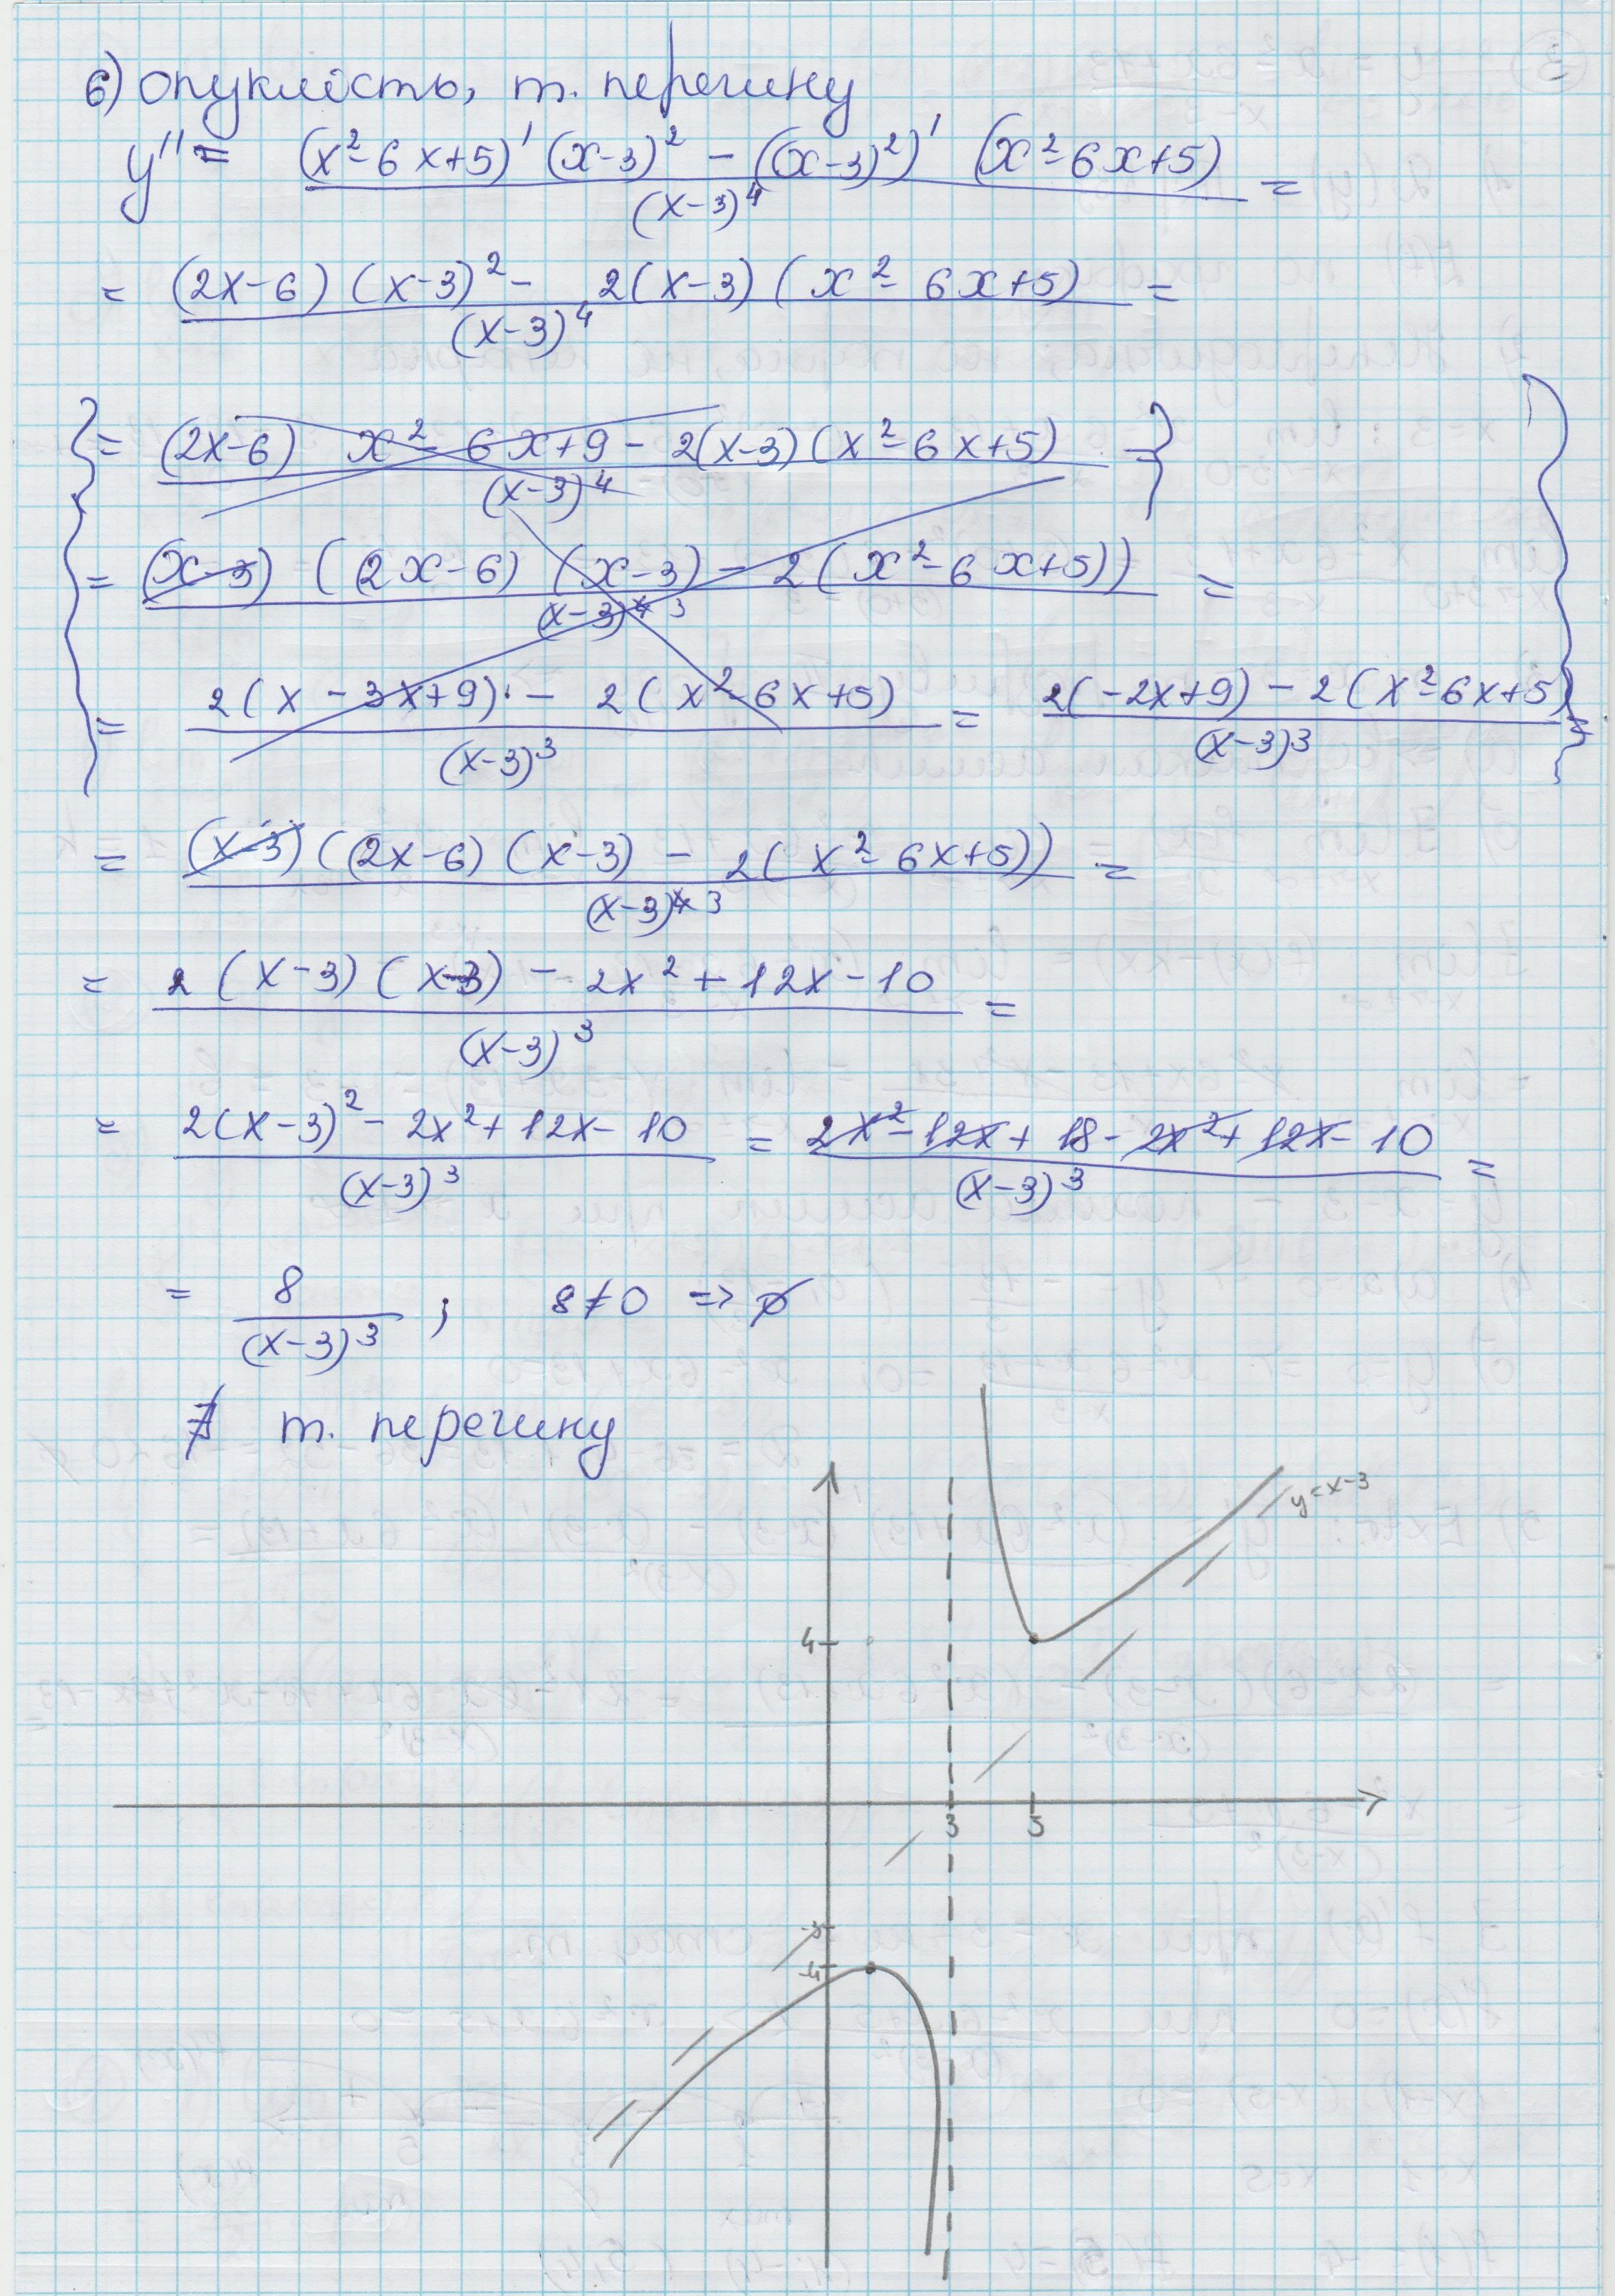 6) опуклість, т. перегину
y'' = (x²-6x+5)' (x-3)² - ((x-3)²)' (x²-6x+5) / (x-3)⁴ =
= (2x-6) (x-3)² - 2(x-3) (x²-6x+5) / (x-3)⁴ =
{ = (2x-6) x²-6x+9 - 2(x-3) (x²-6x+5) / (x-3)⁴ = }
= (x-3) ((2x-6) (x-3) - 2(x²-6x+5)) / (x-3)⁴ ³ =
= 2(x-3x+9) - 2(x²-6x+5) / (x-3)³ = 2(-2x+9) - 2(x²-6x+5) / (x-3)³ = }
= (x-3) ((2x-6) (x-3) - 2(x²-6x+5)) / (x-3)⁴ ³ =
= 2 (x-3) (x-3) - 2x² + 12x - 10 / (x-3)³ =
= 2(x-3)² - 2x² + 12x - 10 / (x-3)³ = 2x² - 12x + 18 - 2x² + 12x - 10 / (x-3)³ =
= 8 / (x-3)³ ; 8≠0 => ∅
∄ т. перегину
y=x-3
4
3 5
-3
-4